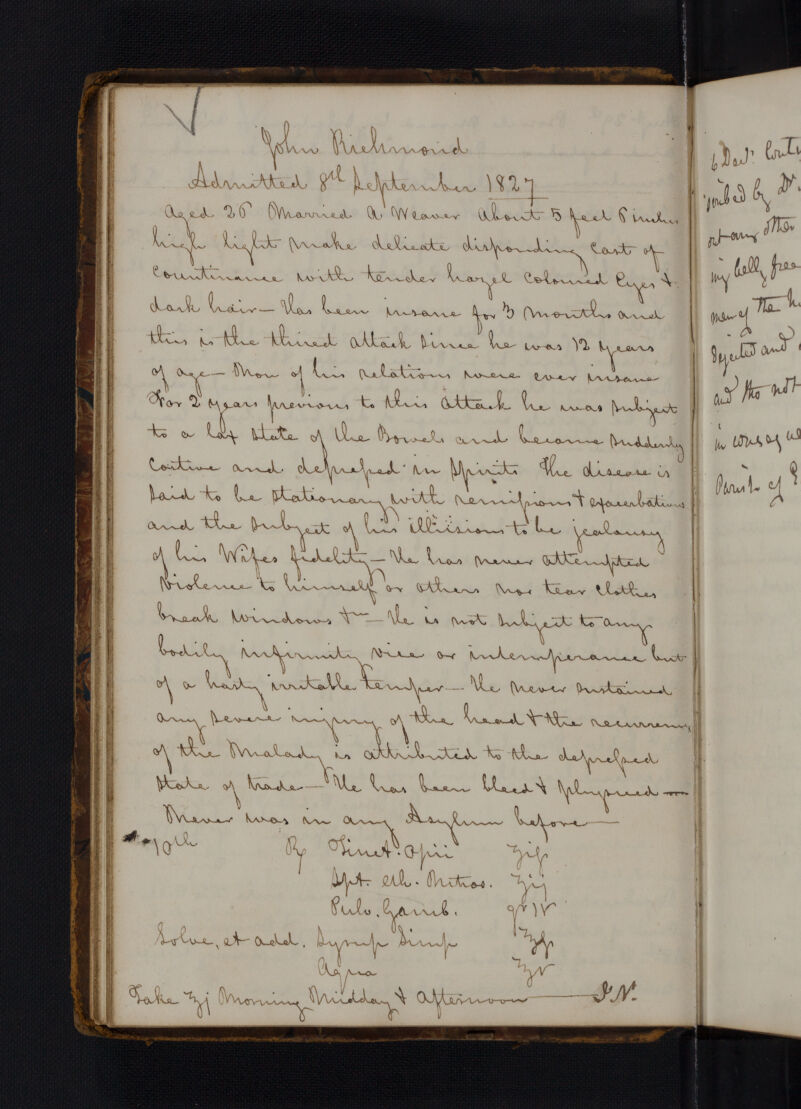 John Richmond
Admitted 8th September 1827
Aged 26 Married a Weaver about 5 feet 6 inches
high light make delicate disponding cast of
Countinance with tender hazel coloured Eyes &
dark hair — Has been insane for 3 months and
this is the thired attack since he was 12 years
of age — Non of his relations were ever insane
For 2 years previous to this attack he was subject
to a lax state of the Bowels and became suddenly
Costive and depressed in Spirits The disease is
said to be stationary with remissions & exacerbations
and the subject of his illisions to be jealousy
of his Wifes fidelity — He has never attempted
violence to himself or others nor tear clothes
break windows &c — He is not subject to any
bodily infirmity vice or intemperance but
of a hasty irritable temper — He never sustained
any severe injury of the head & the recurrency
of the Malady is attributed to the depressed
state of trade — He has been bleed & physiced —
Never was in any Asylum before —
10th ℞ Tinct. Opii ʒiſs
Spt. eth. Nitros. ʒij
Pulv. Gamb. gr IV
Solve, et add. Syrup Simp ℥ſs
Aqua ℥v
Take ℥j Morning Midday & afternoon — J N.
6 Decr.
by Dr.
out any other
my belly free
men of the
Dejected and
and tho not
in
Parish of